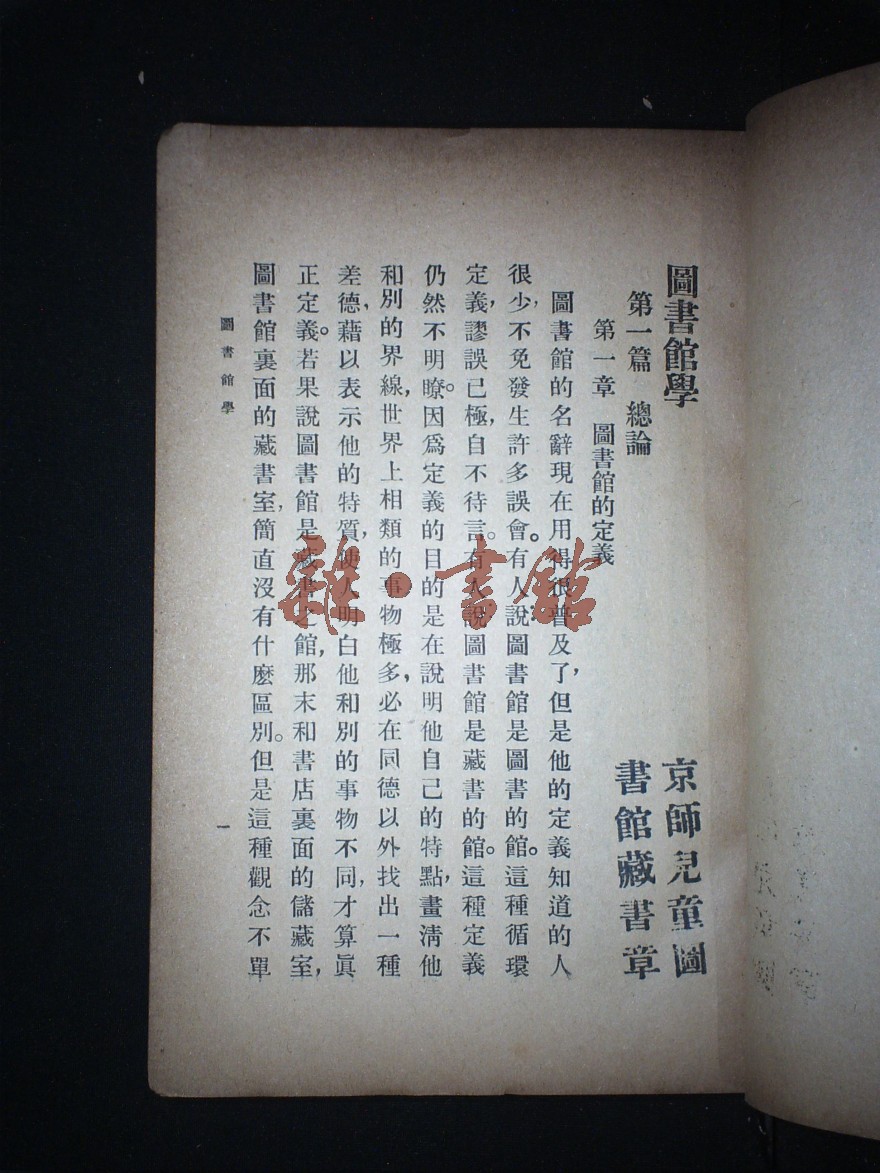 圖書館學
第一篇 總論
第一章 圖書館的定義
圖書館的名辭現在用得很普及了,但是他的定義知道的人
很少,不免發生許多誤會。有人說圖書館是圖書的館。這種循環
定義,謬誤已極,自不待言。有人說圖書館是藏書的館。這種定義
仍然不明瞭。因爲定義的目的是在說明他自己的特點,畫淸他
和別的界線,世界上相類的事物極多,必在同德以外找出一種
差德,藉以表示他的特質,使人明白他和別的事物不同,才算眞
正定義。若果說圖書館是藏書之館,那末和書店裏面的儲藏室,
圖書館裏面的藏書室,簡直沒有什麽區別。但是這種觀念不單
圖書館學
一
京師兒童圖
書館藏書章
雜·書館